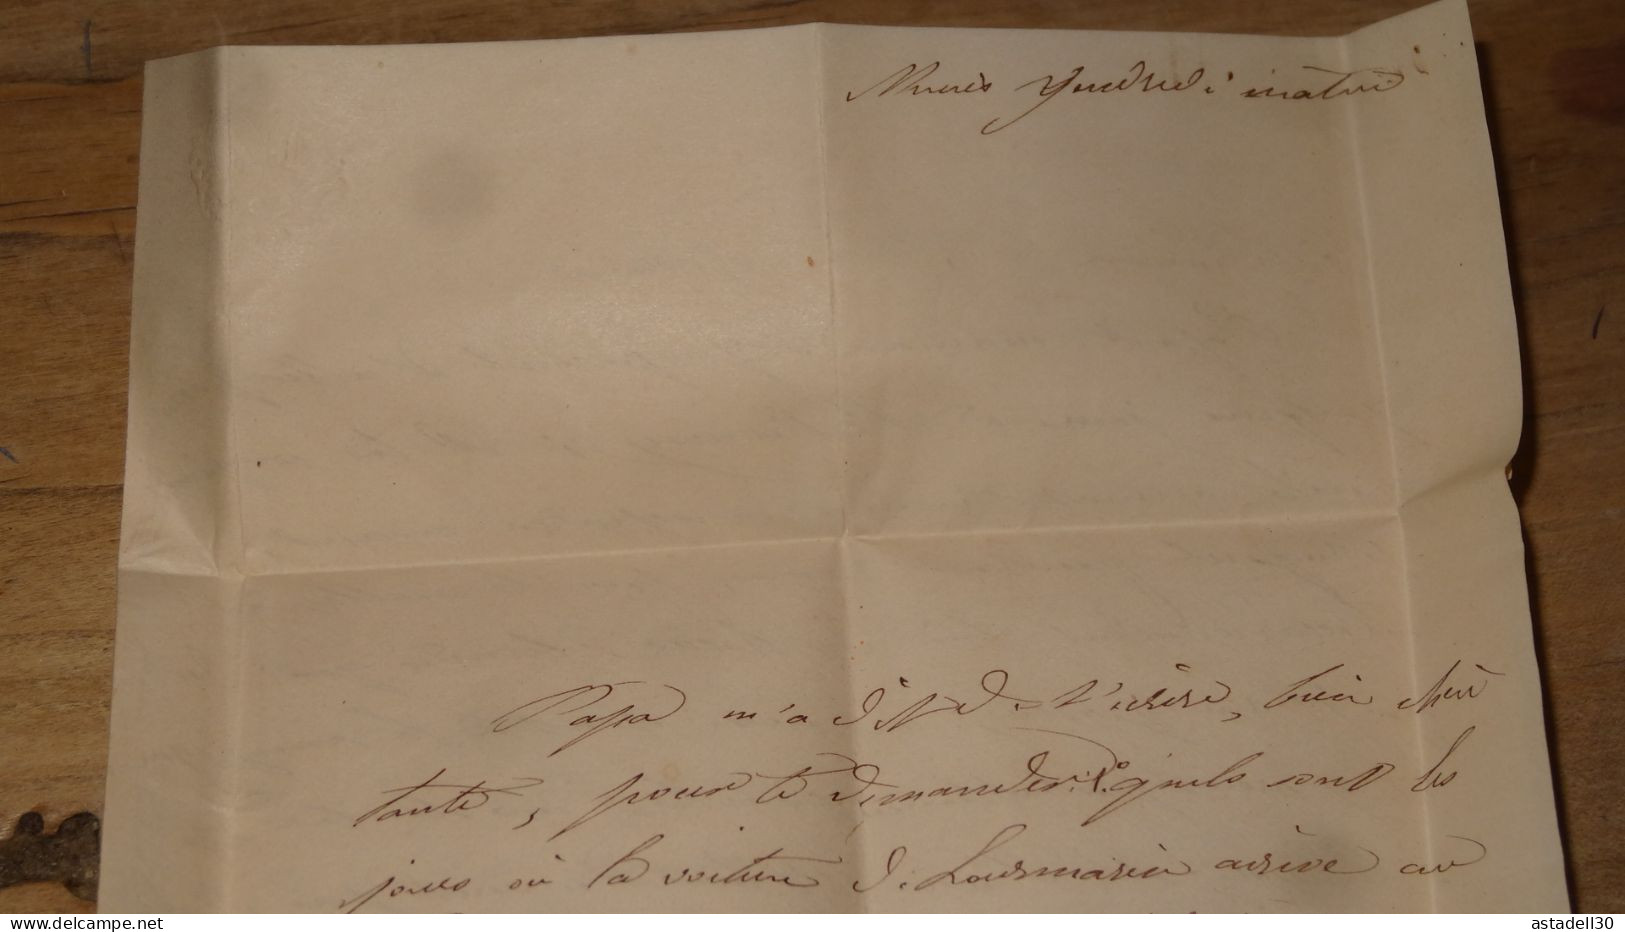 Vendredi matin
Papa m'a dit de t'écrire, bien chère
tante, pour te demander: 1° quels sont les
jours où la voiture de Lourmarin arrive au
www.delcampe.net
astadell30